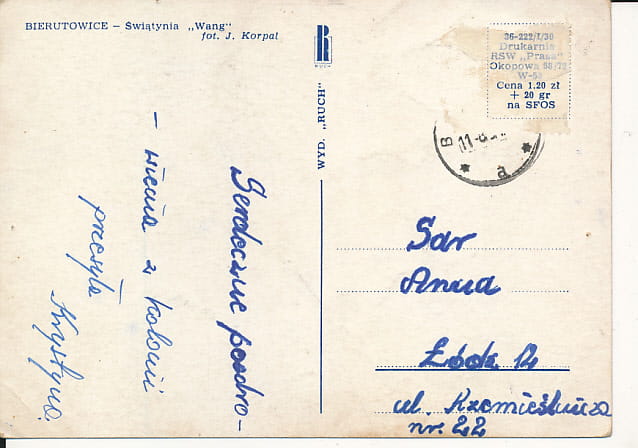 BIERUTOWICE – Świątynia „Wang"
fot. J. Korpal
WYD. „RUCH"
36-222/I/30
Drukarnia
RSW „Prasa"
Okopowa 58/72
Cena 1,20 zł
+ 20 gr
na SFOS
B
a
Serdeczne pozdro-
– wienia z kolonii
przesyła
Krystyna.
Sar
Anna
Łódź 12
ul. Rzemieślnicza
nr. 22